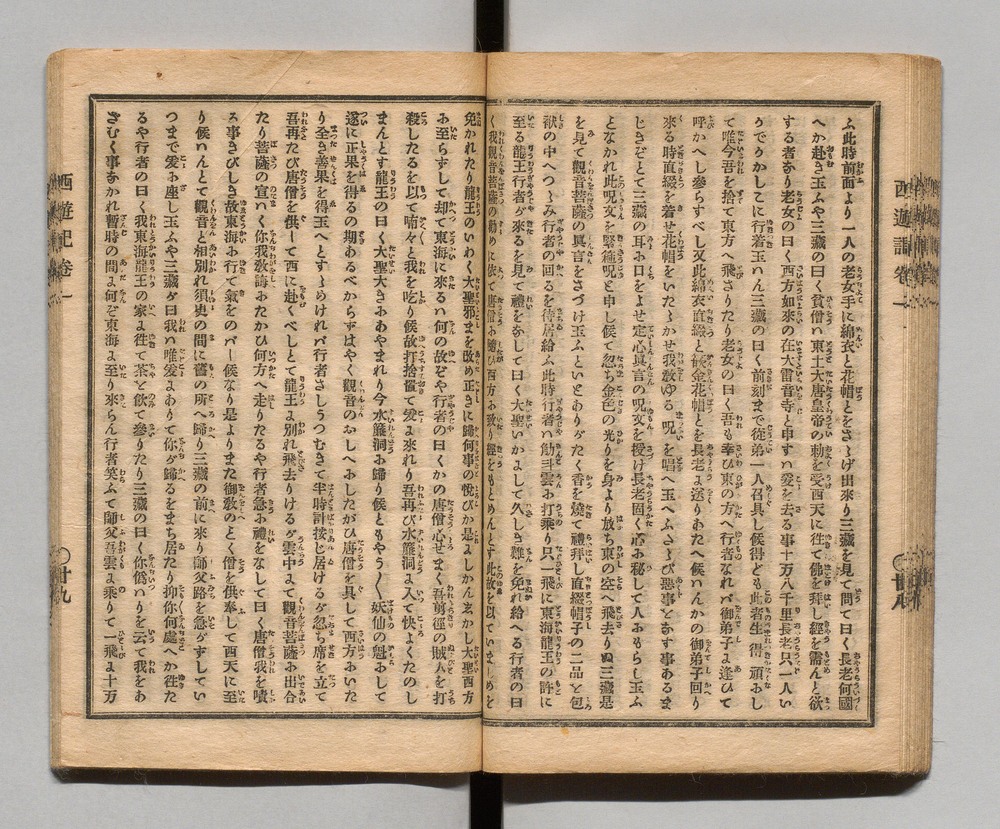 ふ此時前面より一人の老女手に綿衣と花帽とをさゝげ出來り三藏を見て問て曰く長老何國
へか赴き玉ふや三藏の曰く貧僧ハ東土大唐皇帝の勅を受西天に徃て佛を拜し經を需んと欲
する者なり老女の曰く西方如來の在大雷音寺と申すハ爰を去る事十万八千里長老只一人い
うでかかしこに行着玉ハん三藏の曰く前刻まで徒弟一人召具し候得ども此者生得頑おし
て唯今吾を捨て東方へ飛さりたり老女の曰く吾も幸ひ東の方へ行者なれバ御弟子ょ逢ひて
呼かへし參らすべし又此綿衣直綴と嵌金花帽とを長老ょ送りあたへ候ハんかの御弟子回り
來る時直綴を着せ花帽をいたゞかせ我敎ゆる呪を唱へ玉へふさゝび悪事をなす事あるま
じきぞとて三藏の耳お口をよせ定心眞言の呪文を授け長老固く心お秘して人おもらし玉ふ
となかれ此呪文を緊箍呪と申し候て忽ち金色の光りを身より放ち東の空へ飛去りぬ三藏是
を見て觀音菩薩の眞言をさづけ玉ふといとありがたく香を燒て禮拜し直綴帽子の二品を包
袱の中へつゝみ行者の回るを待居給ふ此時行者ハ觔斗雲お打乘り只一飛に東海龍王の許に
至る龍王行者が來るを見て禮をなして曰く大聖いかょして久しき難を免れ給へる行者の曰
く我觀音菩薩の勸めに依て唐僧お隨ひ西方お致り經をもとめんとす此故を以ていましめを
免かれたり龍王のいわく大聖邪まを改め正しきに歸何事の悦びか是ょしかん玄かし大聖西方
お至らずして却て東海に來るハ何の故ぞや行者の曰くかの唐僧心せまく吾剪徑の賊人を打
殺したるを以て喃々と我を吃り候故打捨置て爰ょ來れり吾再び水簾洞ょ入て快よくたのし
まんとす龍王の曰く大聖大きおあやまれり今水簾洞お歸り候ともやう〳〵妖仙の魁おして
遂に正果を得るの期あるべからずはやく觀音のおしへおしたがひ唐僧を具して西方おいた
り至き善果を得玉へとすゝめけれバ行者さしうつむきて半時計按じ居けるが忽ち席を立て
吾再たび唐僧を供して西に赴くべしとて龍王ょ別れ飛去りけるが雲中ょて觀音菩薩お出合
たり菩薩の宣ハく你我敎誨おたかひ何方へ走りたるや行者急お禮をなして曰く唐僧我を嘖
る事きびしき故東海お行て氣をのバし候なり是よりまた御敎のとく僧を供奉して西天に至
り候ハんとて觀音と相別れ須臾の間に舊の所へ歸り三藏の前に來り師父路を急がずしてい
つまで爰お座し玉ふや三藏が曰我ハ唯爰ょありて你が歸るをまち居たり抑你何處へか徃た
るや行者の曰く我東海龍王の家ょ徃て茶を飮て參りたり三藏の曰く你僞ハりを云て我をあ
ざむく事なかれ暫時の間ょ何ぞ東海ょ至り來らん行者笑ふて師父吾雲ょ乘りて一飛ょ十万
西遊記卷一
〇廿九